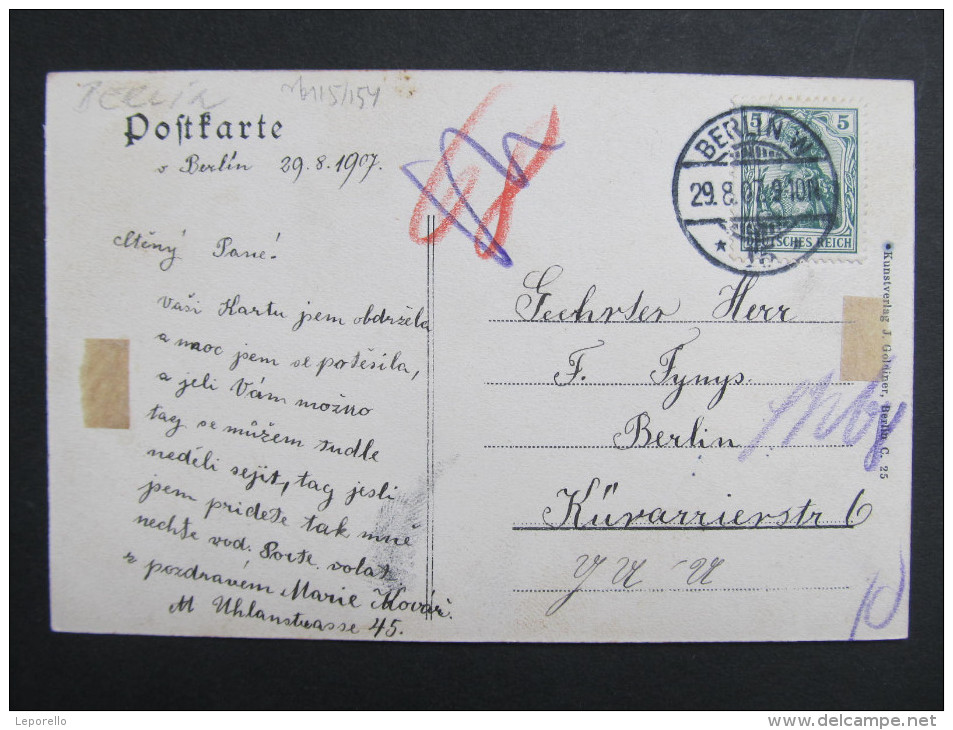 Berlin
115/154
Postkarte
v Berlín 29.8.1907.
Ctěný Pane!
Vaši Kartu jsem obdržela
a moc jsem se potěsila,
a jeli Vám možno
tag se můžem tudle
neděli sejít, tag jesli
jsem pridete tak mně
nechte vod. Porte. volat
z pozdravém Marie Kovář.
M Uhlanstrasse 45.
BERLIN W
29.8.07.9-10N
* 15
5 5
DEUTSCHES REICH
Geehrter Herr
F. Fynys.
Berlin
Kürarrierstr 6
Kunstverlag J. Goldiner, Berlin C. 25
Leporello
http://www.delcampe.net